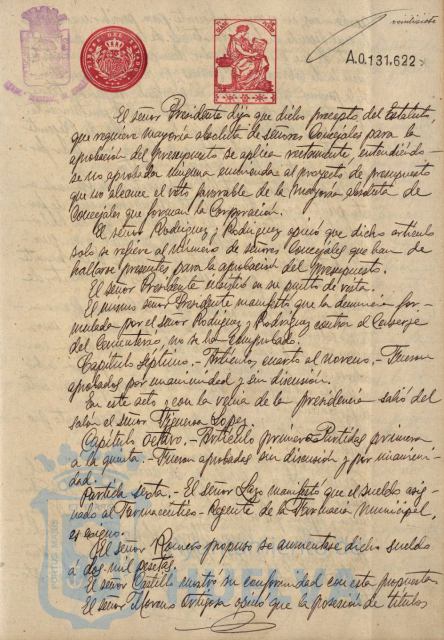 veintisiete
A.0.131.622
TIMBRE DEL ESTADO
El señor Presidente dijo que dicho precepto del Estatuto,
que requiere mayoría absoluta de señores Concejales para la
aprobación del Presupuesto se aplica rectamente, entendiéndo-
se no aprobada ninguna enmienda al proyecto de presupuesto
que no alcance el voto favorable de la mayoría absoluta de
Concejales que forman la Corporación.
El señor Rodríguez y Rodríguez opinó que dicho artículo
solo se refiere al número de señores Concejales que han de
hallarse presentes para la aprobación del Presupuesto.
El señor Presidente insistió en su punto de vista.
El mismo señor Presidente manifestó que la denuncia for-
mulada por el señor Rodríguez y Rodríguez contra el Conserje
del Cementerio, no se ha comprobado.
Capítulo séptimo.- Artículo cuarto al noveno.- Fueron
aprobados por unanimidad y sin discusión.
En este acto y con la venia de la presidencia salió del
salón el señor Figueroa López.
Capítulo octavo.- Artículo primero Partidas primera
a la quinta.- Fueron aprobadas sin discusión y por unanimi-
dad.
Partida sexta.- El señor Lazo manifestó que el sueldo asig-
nado al Farmacéutico-Regente de la Farmacia Municipal,
es exiguo.
El señor Romero propuso se aumentase dicho sueldo
á dos mil pesetas.
El señor Castillo mostró su conformidad con esta propuesta
El señor Moreno Ortega opinó que la posesión de títulos
HUELVA